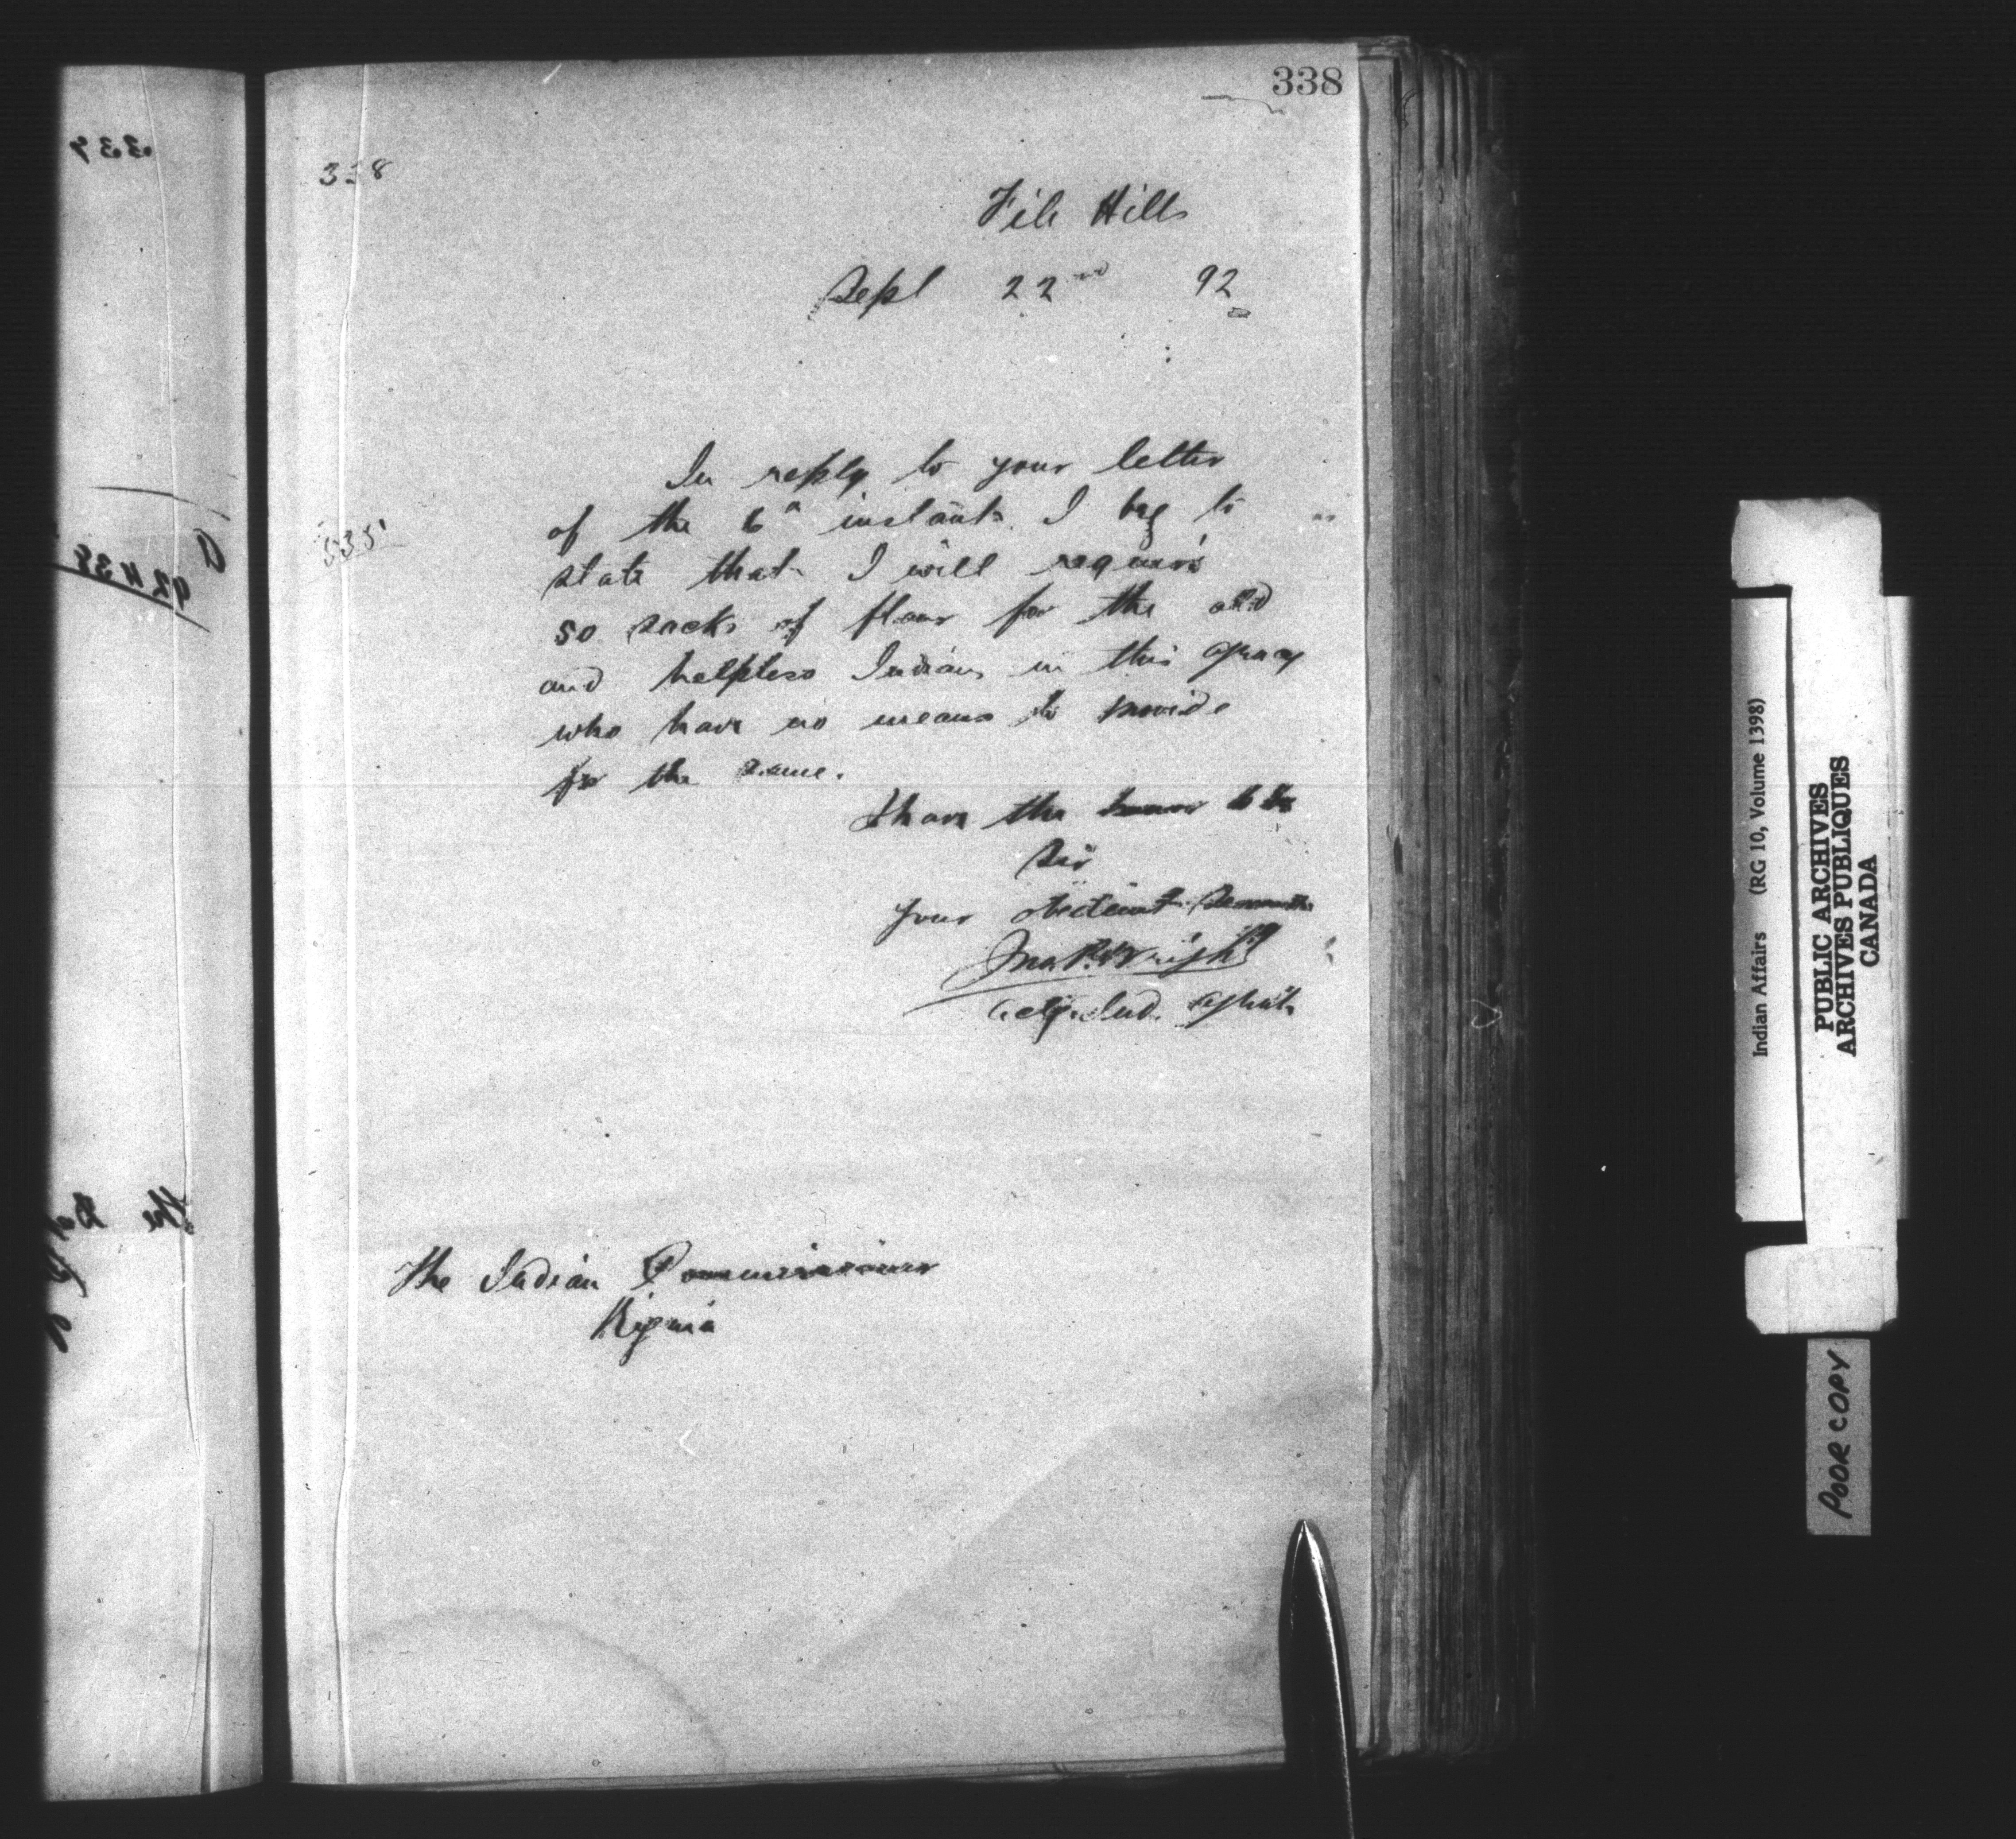 338
338
File Hills
Sept 22nd 92
In reply to your letter
of the 6th instant I beg to
535
state that I will require
50 sacks of flour for the old
and helpless Indians in this agency
who have no means to provide
for the same.
I have the honor to be
Sir
Your obedient servant
Jno. P. Wright
Actg. Ind. Agent
The Indian Commissioner
Regina
Indian Affairs (RG 10, Volume 1398)
PUBLIC ARCHIVES
ARCHIVES PUBLIQUES
CANADA
POOR COPY